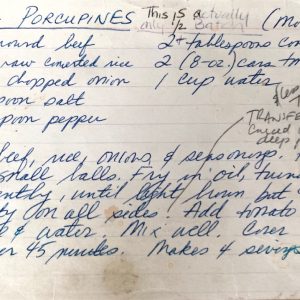 PORCUPINES This is actually (m
only 1/2 Batch!
ound beef 2+ tablespoons co
raw converted rice 2 (8-oz) cans tom
chopped onion 1 cup water
poon salt
poon pepper less
TRANSFE
deep
beef, rice, onions & seasonings.
small balls. Fry in oil, turning
ently, until light brown but
ty on all sides. Add tomato
& water. Mix well. Cover
er 45 minutes. Makes 4 servings